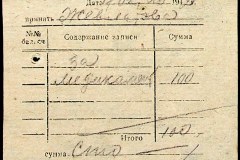 принять
№№ бал. сч Содержание записи Сумма
за
Медикамен 100
Итого 100
сумма сто